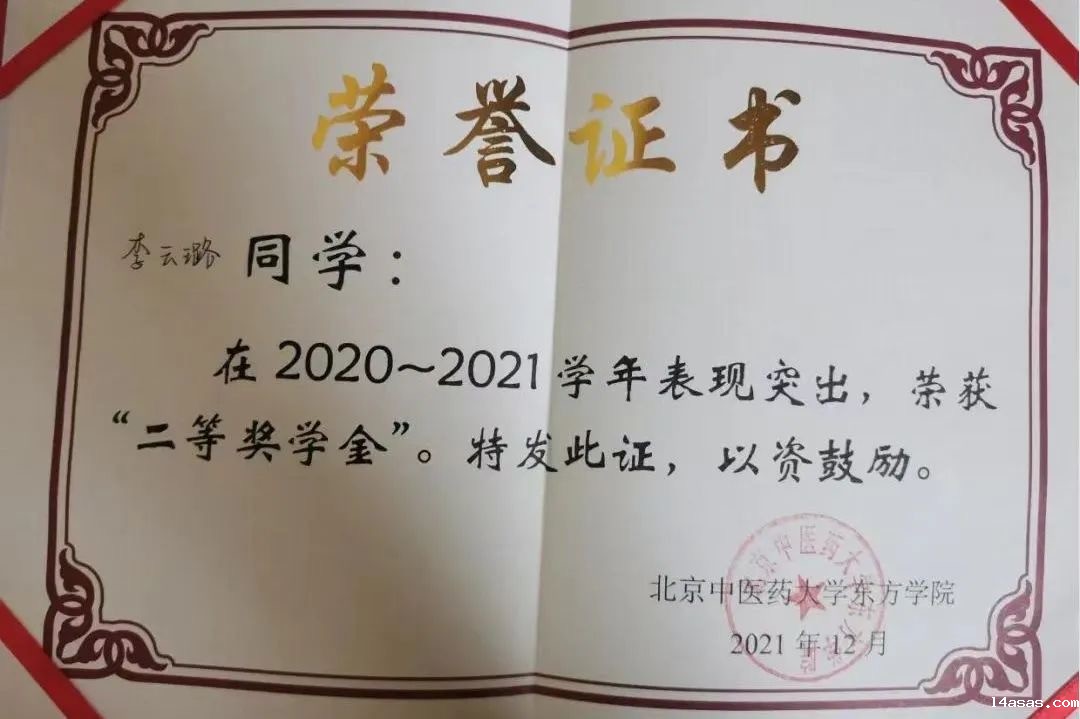 荣誉证书
李云璐 同学：
在2020～2021学年表现突出，荣获
“二等奖学金”。特发此证，以资鼓励。
北京中医药大学东方学院
北京中医药大学东方学院
2021年12月
14asas.com